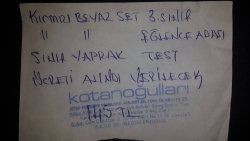 KIRMIZI BEYAZ SET 3. SINIF
" " EĞLENCE ADASI
SINIF YAPRAK TEST
ÜCRETİ ALINDI VERİLECEK
kotanoğulları
145 TL